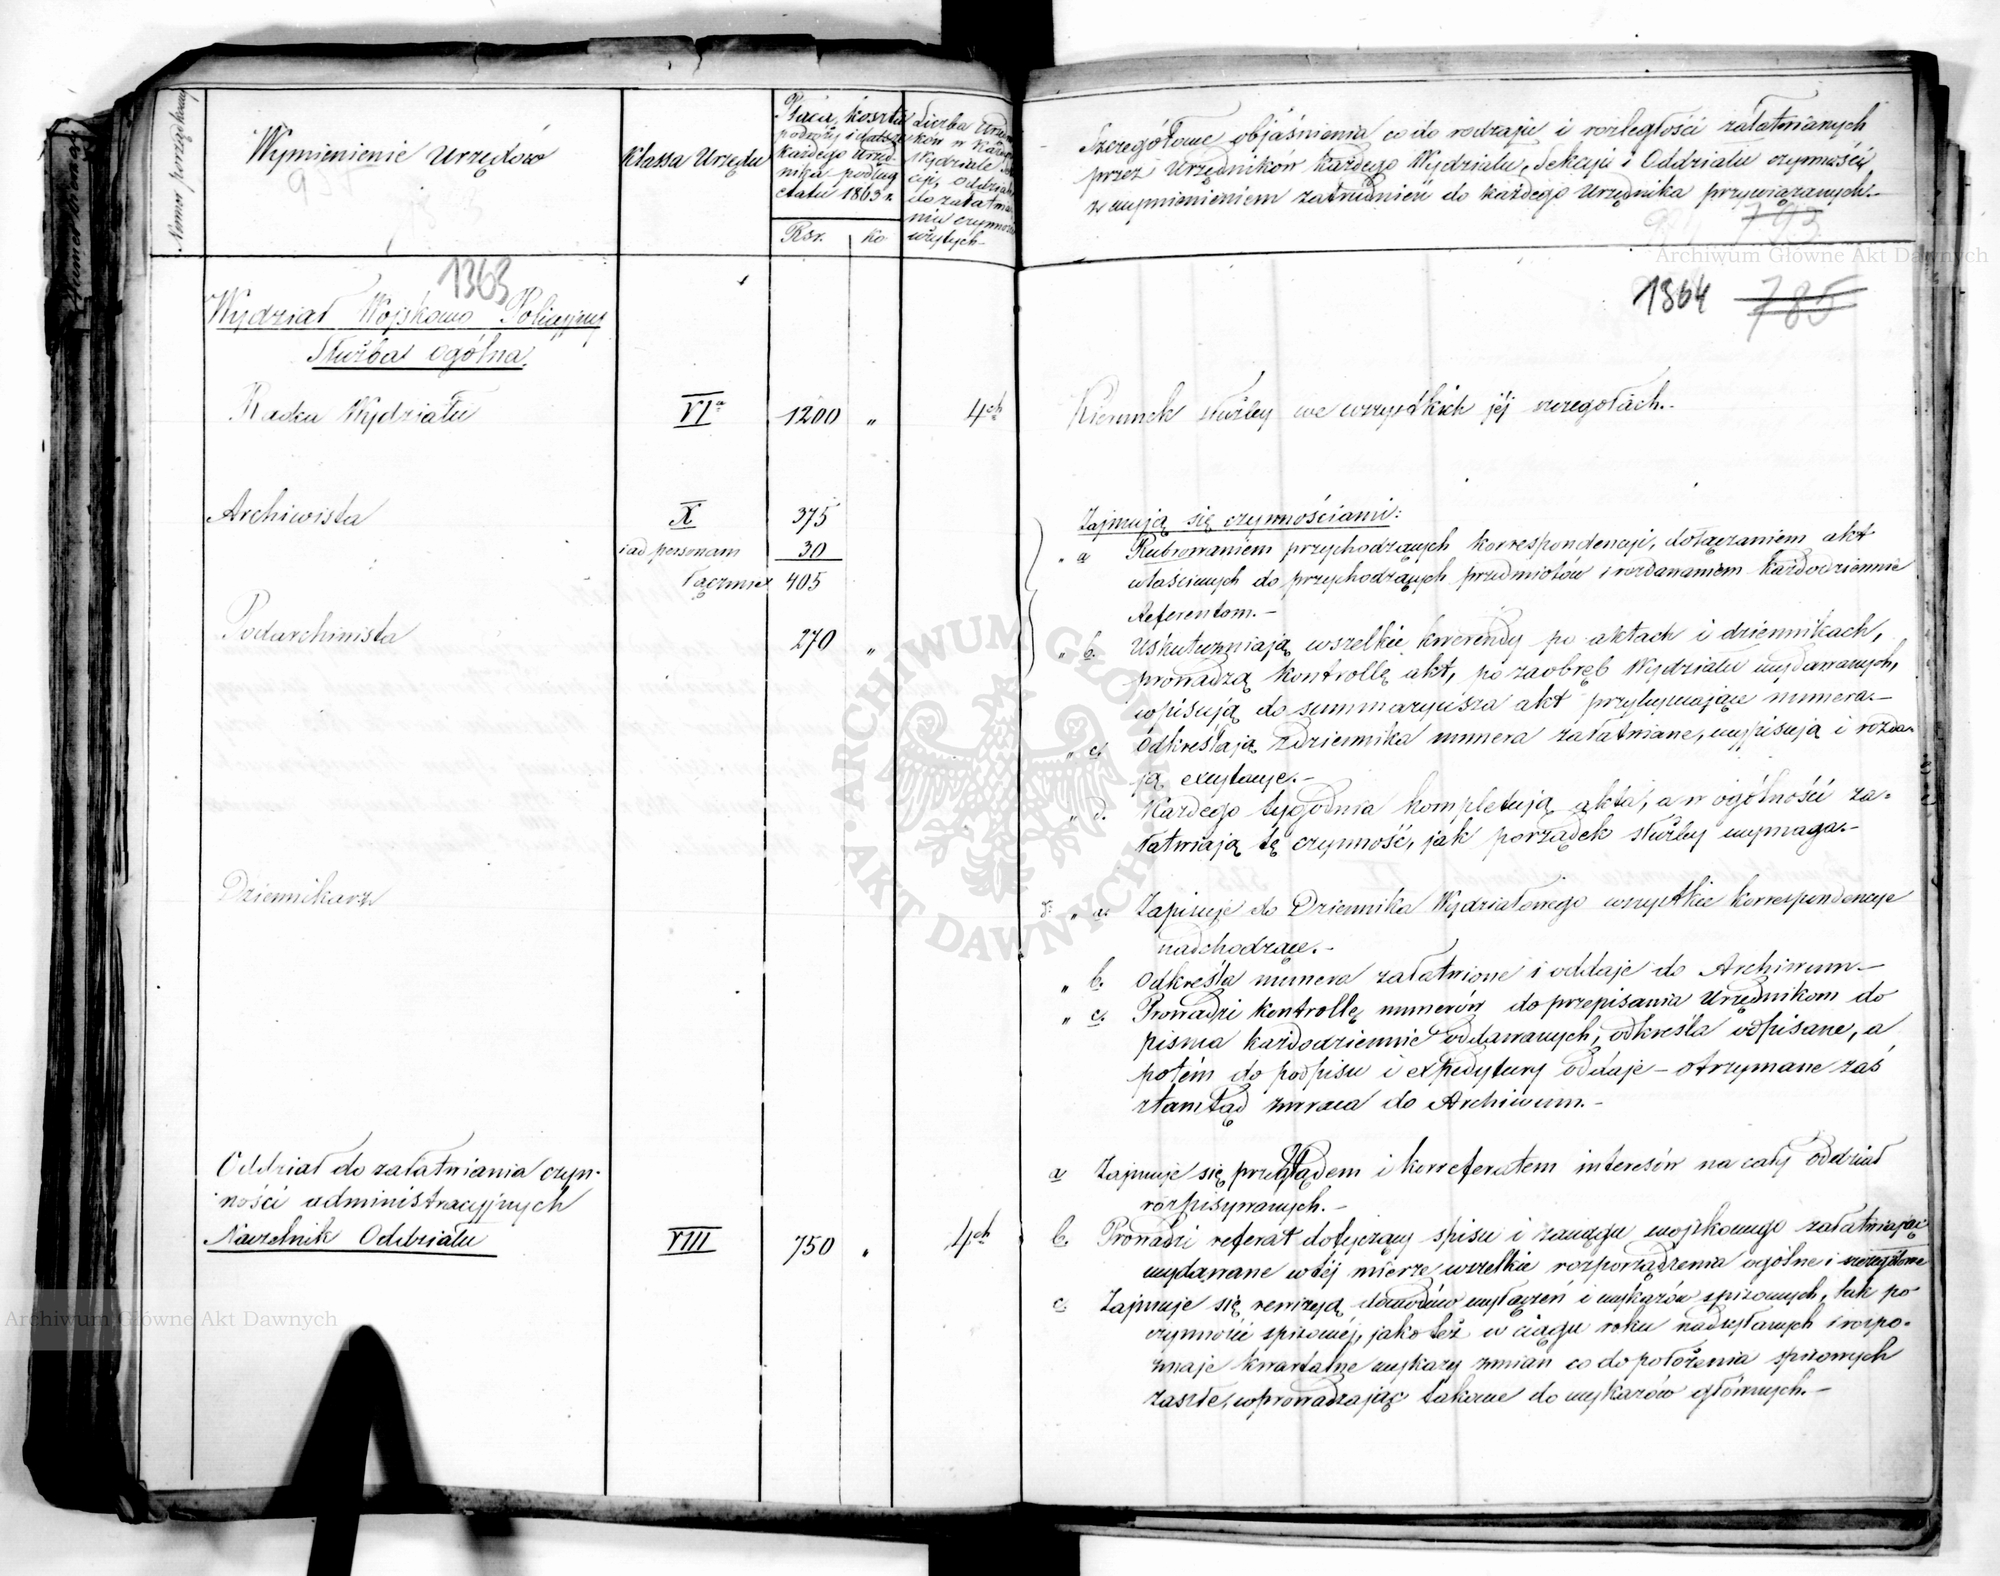 Numer porządkowy
Wymienienie Urzędów
Klassa Urzędu
Płaca, koszta
podróży i dalsze
każdego Urzęd-
nika podług
etatu 1863 r.
Rsr. ko
Liczba Urzędni
ków w każdym
Wydziale
cji, Oddziale
do załatwia
nia czynności
użytych
1363
Wydział Wojskowo Policyjny
Służba ogólna.
Radca Wydziału VIa 1200 " 4ch
Archiwista X 375
i ad personam 30
łącznie 405
Podarchiwista 270 "
Dziennikarz
Oddział do załatwiania czyn-
ności administracyjnych
Naczelnik Oddziału VIII 750 " 4ch
Szczegółowe objaśnienia co do rodzaju i rozległości załatwianych
przez Urzędników każdego Wydziału, Sekcji i Oddziału czynności
z wymienieniem zatrudnień do każdego Urzędnika przywiązanych.-
793
1864 785
Kierunek służby we wszystkich jéj szczegółach.-
Zajmują się czynnościami:
" a Rubrowaniem przychodzących korrespondencyi, dołączaniem akt
właściwych do przychodzących przedmiotów i rozdawaniem każdodziennie
Referentom.-
" b. Uskuteczniają wszelkie kwerendy po aktach i dziennikach,
prowadzą kontrollę akt, po zaobręb Wydziału wydawanych,
wpisują do summaryusza akt przybywające numera.-
" c. Odkreślają z dziennika numera załatwiane, wypisują i rozda-
ją excytacye.-
" d. Każdego tygodnia kompletują akta, a w ogólności za-
łatwiają tę czynność, jak porządek służby wymaga.-
" a. Zapisuje do Dziennika Wydziałowego wszystkie korrespondencye
nadchodzące.-
" b. Odkreśla numera załatwione i oddaje do Archiwum.-
" c. Prowadzi kontrollę numerów do przepisania Urzędnikom do
pisma każdodziennie oddawanych, odkreśla odpisane, a
potém do podpisu i expedytury oddaje - otrzymane zaś
ztamtąd zwraca do Archiwum.-
a Zajmuje się przeglądem i korreferatem interesów na cały oddział
rozpisywanych.-
b. Prowadzi referat dotyczący spisu i zaciągu wojskowego załatwiając
wydawane w téj mierze wszelkie rozporządzenia ogólne i szczególne
c. Zajmuje się rewizyą dowodów wyłączeń i wykazów spisowych, tak po
czynności spisowéj, jako téż w ciągu roku nadsyłanych i rozpo-
znaje kwartalne wykazy zmian co do położenia spisowych
zaszłe, wprowadzając takowe do wykazów głównych.-
Archiwum Główne Akt Dawnych
Archiwum Główne Akt Dawnych
ARCHIWUM GŁÓWNE AKT DAWNYCH